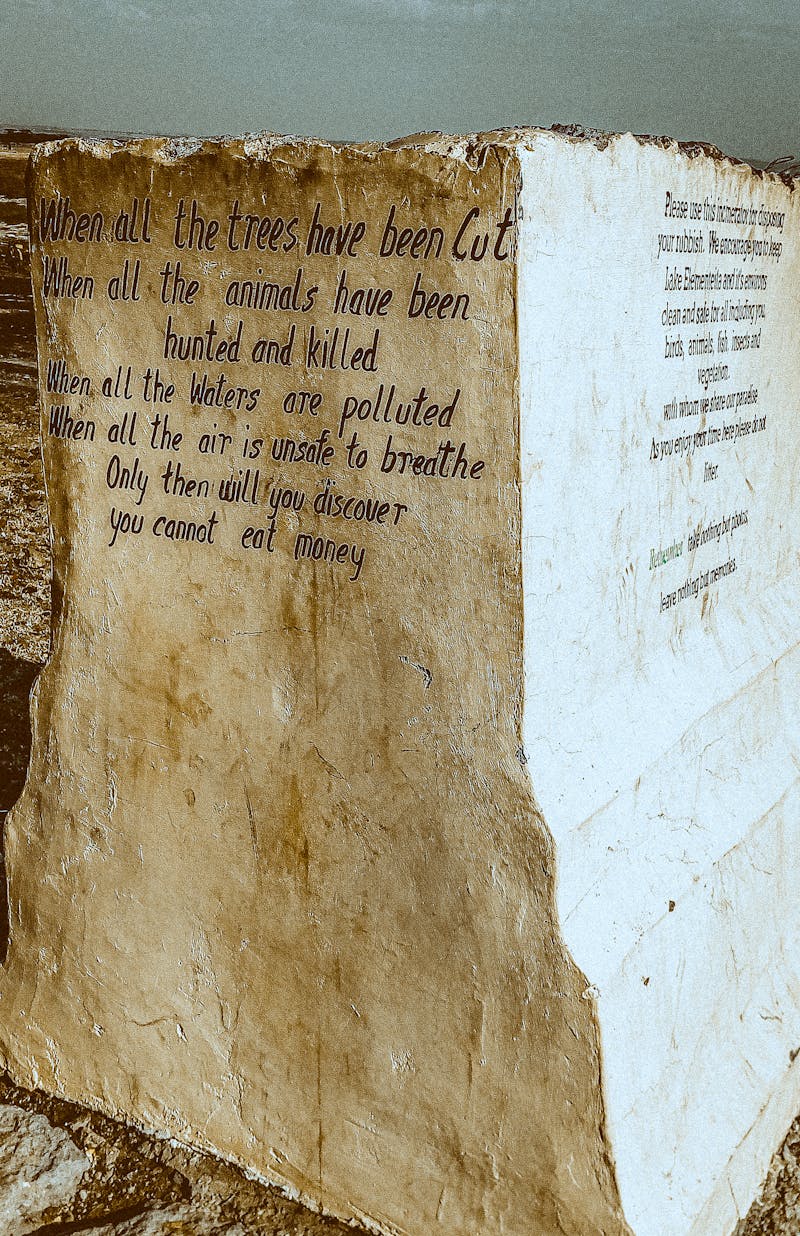 When all the trees have been Cut
When all the animals have been
hunted and killed
When all the Waters are polluted
When all the air is unsafe to breathe
Only then will you discover
you cannot eat money
Please use this incinerator for disposing
your rubbish. We encourage you to keep
Lake Elementeita and it's environs
clean and safe for all including you,
birds, animals, fish, insects and
vegetation.
with whom we share our paradise.
As you enjoy your time here please do not
litter.
Remember take nothing but photos,
leave nothing but memories.